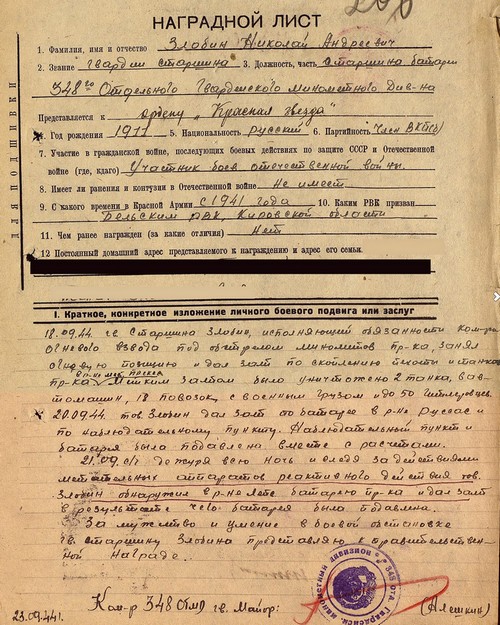 200
НАГРАДНОЙ ЛИСТ
1. Фамилия, имя и отчество Злобин Николай Андреевич
2. Звание гвардии старшина 3. Должность, часть старшина батареи
348го Отдельного Гвардейского Минометного Див-на
Представляется к ордену "Красная звезда"
4. Год рождения 1911 5. Национальность русский 6. Партийность Член ВКП(б)
7. Участие в гражданской войне, последующих боевых действиях по защите СССР и Отечественной
войне (где, когда) Участник боев отечественной войны.
8. Имеет ли ранения и контузии в Отечественной войне Не имеет
9. С какого времени в Красной Армии с 1941 года 10. Каким РВК призван
Бельским РВК, Кировской области
11. Чем ранее награжден (за какие отличия) Нет
12 Постоянный домашний адрес представляемого к награждению и адрес его семьи.
ДЛЯ ПОДШИВКИ
I. Краткое, конкретное изложение личного боевого подвига или заслуг
18.09.44. гв. Старшина Злобин, исполняющий обязанности ком-ра
огневого взвода под обстрелом минометов пр-ка, занял
огневую позицию и дал залп по скоплению пехоты и танков
пр-ка в р-не. Этим залпом было уничтожено 2 танка, 6 ав-
томашин, 18 повозок, с военным грузом и до 50 гитлеровцев.
20.09.44. тов. Злобин дал залп по батарее в р-не Руссас и
по наблюдательному пункту. Наблюдательный пункт и
батарея была подавлена вместе с расчетами.
21.09. с/г дежуря всю ночь и следя за действиями
метательных аппаратов реактивного действия тов.
Злобин обнаружил в р-не батарею пр-ка и дал залп
в результате чего батарея была подавлена.
За мужество и умение в боевой обстановке
гв. старшину Злобина представляю к правительствен-
ной награде.
Ком-р 348 ОГМД гв. Майор: (Алешкин)
23.09.44г.